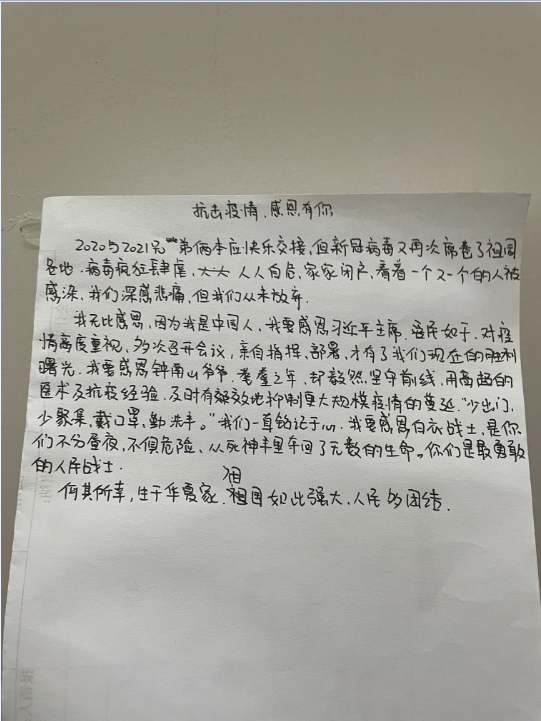 抗击疫情、感恩有你
2020与2021兄弟俩本应快乐交接，但新冠病毒又再次席卷了祖国
各地．病毒疯狂肆虐，人人自危，家家闭户，看着一个又一个的人被
感染，我们深感悲痛，但我们从未放弃．
我无比感恩，因为我是中国人，我要感恩习近平主席．爱民如子，对疫
情高度重视，多次召开会议，亲自指挥、部署，才有了我们现在的胜利
曙光．我要感恩钟南山爷爷．耄耋之年，却毅然坚守前线，用高超的
医术及抗疫经验．及时有效地抑制更大规模疫情的蔓延．“少出门，
少聚集，戴口罩，勤洗手。”我们一直铭记于心．我要感恩白衣战士，是你
们不分昼夜，不惧危险、从死神手里夺回了无数的生命。你们是最勇敢
的人民战士．
何其所幸，生于华夏家．祖国如此强大，人民多团结．